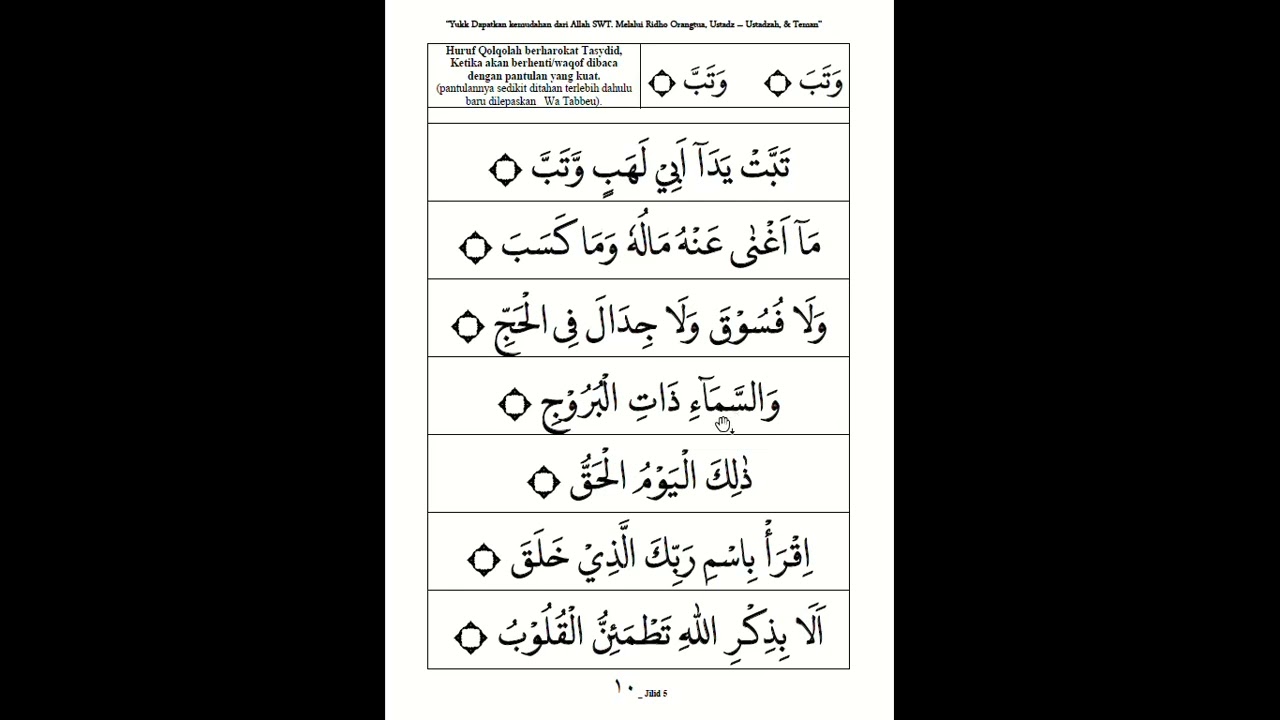 "Yukk Dapatkan kemudahan dari Allah SWT. Melalui Ridho Orangtua, Ustadz – Ustadzah, & Teman"
Huruf Qolqolah berharokat Tasydid,
Ketika akan berhenti/waqof dibaca
dengan pantulan yang kuat.
(pantulannya sedikit ditahan terlebih dahulu
baru dilepaskan Wa Tabbeu).
وَتَبَ ۝ وَتَبَّ ۝
تَبَّتْ يَدَآ اَبِيْ لَهَبٍ وَّتَبَّ ۝
مَآ اَغْنٰى عَنْهُ مَالُهٗ وَمَا كَسَبَ ۝
وَلَا فُسُوْقَ وَلَا جِدَالَ فِى الْحَجِّ ۝
وَالسَّمَآءِ ذَاتِ الْبُرُوْجِ ۝
ذٰلِكَ الْيَوْمُ الْحَقُّ ۝
اِقْرَأْ بِاسْمِ رَبِّكَ الَّذِيْ خَلَقَ ۝
اَلَا بِذِكْرِ اللهِ تَطْمَئِنُّ الْقُلُوْبُ ۝
١٠ _ Jilid 5